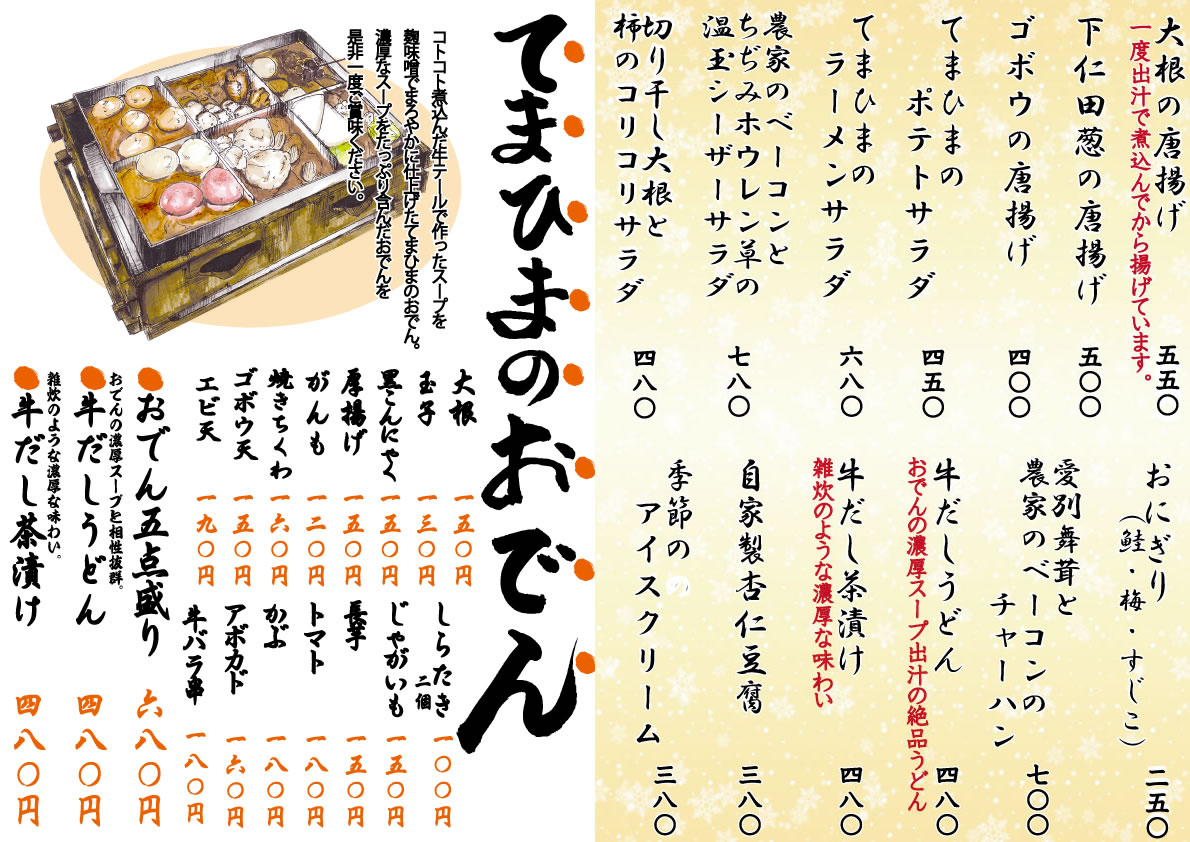 大根の唐揚げ 五五〇
一度出汁で煮込んでから揚げています。
下仁田葱の唐揚げ 五〇〇
ゴボウの唐揚げ 四〇〇
てまひまの
ポテトサラダ 四五〇
てまひまの
ラーメンサラダ 六八〇
農家のベーコンと
ちぢみホウレン草の
温玉シーザーサラダ 七八〇
切り干し大根と
柿のコリコリサラダ 四八〇
おにぎり
(鮭・梅・すじこ) 二五〇
愛別舞茸と
農家のベーコンの
チャーハン 七〇〇
牛だしうどん 四八〇
おでんの濃厚スープ出汁の絶品うどん
牛だし茶漬け 四八〇
雑炊のような濃厚な味わい
自家製杏仁豆腐 三八〇
季節の
アイスクリーム 三八〇
てまひまのおでん
コトコト煮込んだ牛テールで作ったスープを
麹味噌でまろやかに仕上げたてまひまのおでん。
濃厚なスープをたっぷり含んだおでんを
是非一度ご賞味ください。
大根 一五〇円
玉子 一三〇円
黒こんにゃく 一五〇円
厚揚げ 一五〇円
がんも 一二〇円
焼きちくわ 一六〇円
ゴボウ天 一五〇円
エビ天 一九〇円
しらたき二個 一〇〇円
じゃがいも 一五〇円
長芋 一五〇円
トマト 一八〇円
かぶ 一八〇円
アボカド 一六〇円
牛バラ串 一八〇円
おでん五点盛り 六八〇円
おでんの濃厚スープと相性抜群。
牛だしうどん 四八〇円
雑炊のような濃厚な味わい。
牛だし茶漬け 四八〇円